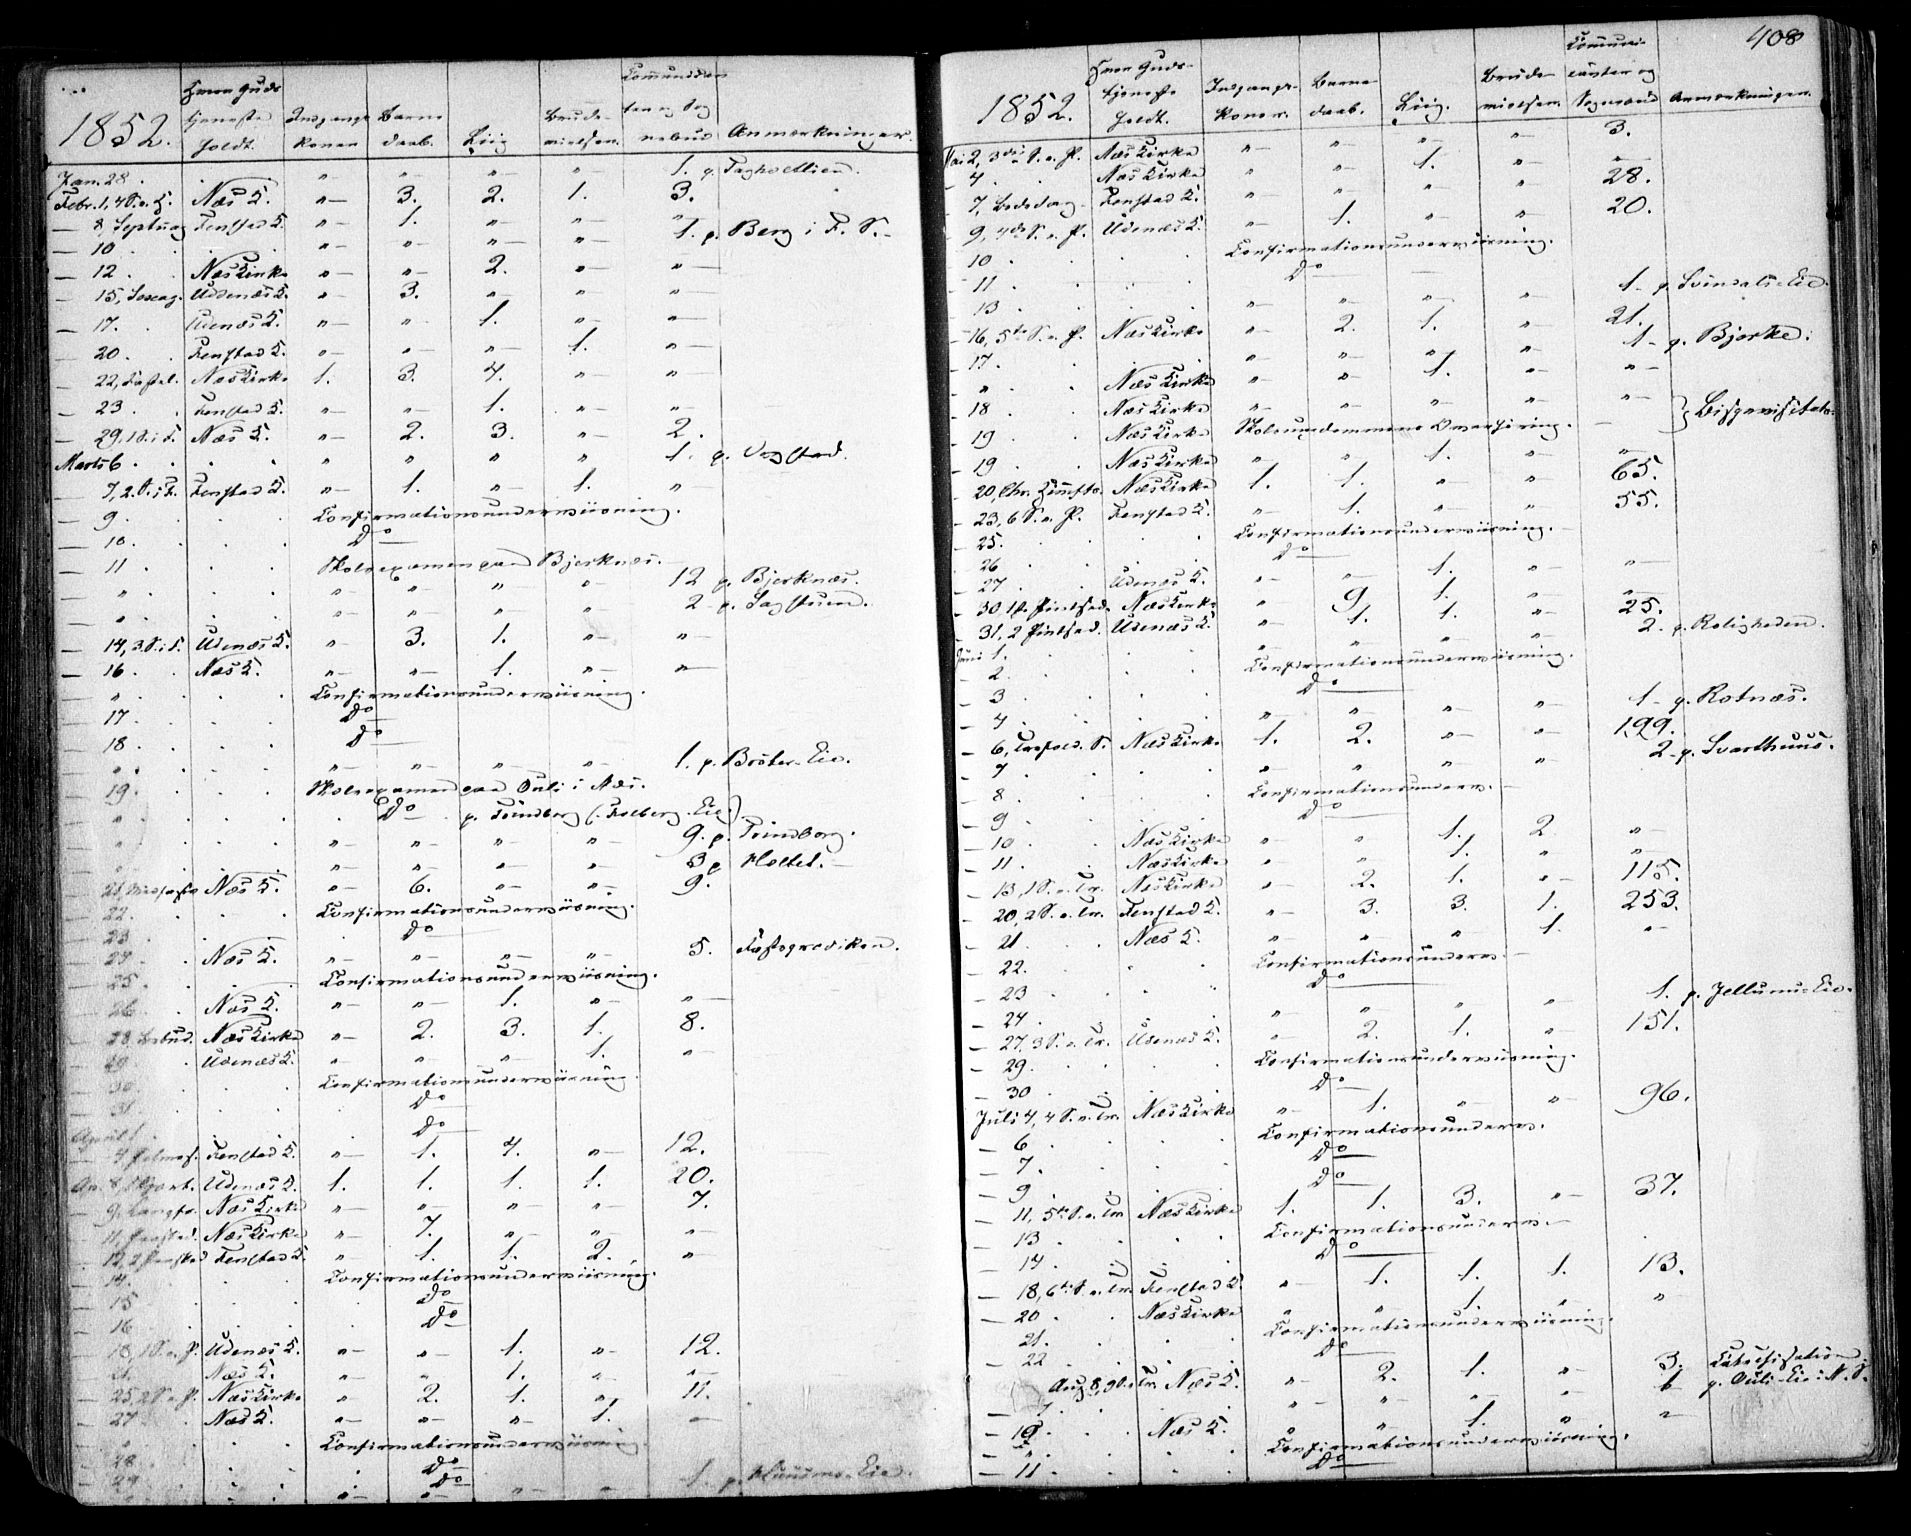 1852. Hvor Guds tjeneste holdt. Indgangs Koner Barne daab. Liig Brude vielser. Communican ter og Sog nebud Anmærkninger.
Jan. 28 . „ „ „ „ 1. p.
Febr. 1, 4 S. e. H. Næs K. „ 3. 2. 1. 3.
— 8, Septuag Fenstad K. „ 1. „ „ 1. p. Berg i F. S.
— 10 . . „ „ „ „
— 12 . Næs Kirke „ „ 2. „ „
— 15, Sexag. Udenæs K. „ 3. „ „ „
— 17. . Udenæs K. „ „ 1. „ „
— 20 . Fenstad K. „ „ „ 1. „
— 22, Fastel. Næs Kirke 1. 3. 4. „ „
— 23 . . Fenstad K. „ „ 1. „ „
— 29, 1 S. i F. Næs K. „ 2. 3. „ 2.
Marts 6 . . „ „ „ „ 1. p. Vogstad.
— 7, 2. S. i F. Fenstad K. „ 1. „ 1. „
— 9 . . Confirmationsunderviisning.
— 10 . . Do
— 11 . . Skoleexamen paa Bjerknæs.
— „ . „ „ „ „ 12 p. Bjerknæs.
— „ . „ „ „ „ 2 p. Sagstuen.
— 14, 3. S. i F. Udenæs K. „ 3. 1. „ „
— 16 . Næs K. „ „ 1. „ „
— „ . . Confirmationsunderviisning.
— 17 . . Do
— 18 . . Do
— „ . „ „ „ „ 1. p. Bröter-Eie.
— 19 . . Skoleexamen paa Ouli i Næs.
— „ . . Do p. Trindborg (Folberg-Eie)
— „ . „ „ „ „ 9. p. Trindborg.
„ „ „ „ 3 p Holtet.
— 21, Midfaste Næs K. „ 6. „ „ 9.
— 22. . Confirmationsunderviisning.
— 23 . . Do
— 24 . Næs K. „ „ „ „ 5. Fasteprædiken.
— 25 . . Confirmationsunderviisning.
— 26 . Næs K. „ „ 1. „ „
— 28, Bebud. Næs Kirke „ 2. 3. 1. 8.
— 29 . Udenæs K. „ „ „ 1. „
— 30 . . Confirmationsunderviisning.
— 31 . . Do
April 1. . Do
— 4 Palmes. Fenstad K. „ 1. 4. „ 12.
Ap. 8, Skjært. Udenæs K. 1. 1. 1. 1. 20.
— 9, Langfr. Næs Kirke „ „ „ „ 7.
— 11, Paasked. Næs Kirke „ 7. „ „ „
— 12, 2 Paasked Fenstad K. „ 1. 1. 2. „
— 14. . Confirmationsunderviisning.
— 15 . . Do
— 16 . . Do
— 18, 1 S. e. P. Udenæs K. „ „ 1. „ 12.
— 21. Næs K. „ „ 1. „ „
— 25, 2 S. e. P. Næs Kirke „ 2. 1. „ 11.
— 27 Næs K. „ „ „ 1. „
— „ . Confirmationsunderviisning.
— 28 . . Do
— 29 . . Do
„ „ „ „ 1. p. Huusmo-Eie.
408
1852. Hvor Guds- tjeneste holdt. Indgangs- Koner. Barne daab. Liig. Brude vielser. Communi- canter og Sognebud Anmærkninger.
Mai 2, 3die S. e. P. Næs Kirke „ „ „ „ 3.
— 4 . . Næs Kirke „ „ 1. „ „
— 7, Bededag Fenstad K. „ „ „ „ 28.
— 9, 4de S. e. P. Udenæs K. „ 1. „ „ 20.
— 10 . . Confirmationsunderviisning.
— 11 . . Do
— 13 . . „ „ „ „ 1 p. Svindals-Eie.
— 16, 5te S. e. P. Næs Kirke „ 2. 1. „ 21.
— 17 . . „ „ „ „ 1 p. Bjerke.
— „ . . Næs Kirke „ „ 1. „ „
— 18 . . Næs Kirke „ „ „ „ „ } Bispevisitats.
— 19 . . Næs Kirke Skoleungdommens Overhöring.
— 19 . . Næs Kirke „ „ 1. „ „
— 20, Chr. Himmelf. Næs Kirke 1. 1. „ „ 65.
— 23, 6 S. e. P. Fenstad K. „ 1. „ „ 55.
— 25. . Confirmationsunderviisning.
— 26 . . Do
— 27 . . Udenæs K. „ „ 1. „ „
— 30 1ste Pintsed. Næs Kirke „ 9 1. „ „
— 31, 2 Pintsed. Udenæs K. „ 1. 1. „ 25.
Juni 1. . „ „ „ „ 2. p. Roligheden.
— 2. . Confirmationsunderviisning.
— 3 . . Do
— 4 . . „ „ „ „ 1 p. Rotnæs.
— 6, Trefold. S. Næs Kirke 1. 2. „ „ 199.
— 7 . . „ „ „ „ 2 p. Svarthuus.
— 8 . . Confirmationsunderv.
— 9 . . Do
— 10 . . Næs Kirke „ „ 1. 2. „
— 11 . . Næs Kirke „ „ 1. „ „
— 13, 1 S. e. Tr. Næs Kirke „ 2. 1. „ 115.
— 20, 2 S. e. Tr. Fenstad K. „ 3. 3. 1. 253.
— 21 . . Næs K. „ „ „ 1. „
— 22. . Confirmationsunderv.
— 23 . . Do
— 24 . . „ „ „ „ 1. p. Jellumu-Eie.
— 27, 3 S. e. Tr. Udenæs K. „ 2. 1. „ 151.
— 29. . Confirmationsunderviisning.
— 30 . . Do
Juli 4, 4 S. e. Tr. Næs Kirke „ 1. „ „ 96.
— 6 . . Confirmationsunderv.
— 7 . . Do
— 9 . . Do
— 11, 5te S. e. Tr. Næs Kirke 1. 1. 3. „ 37.
— 13 . . Confirmationsunderv.
— 14 . . Do
— 18, 6te S. e. Tr. Fenstad K. „ 1. 1. 1. 13.
— 20 . . Næs Kirke „ „ 1. „ „
— 21. . Confirmationsunderviisning.
— 22 . . Do
Aug 8, 9de e. Tr. Næs K. „ 2. 1. „ 3. Catechisation
„ „ „ „ 1 p. Ouli-Eie i N. S.
— 10 . . Næs K. „ „ 1. „ „
— „ . . Confirmationsunderviisning.
— 11 . . Do